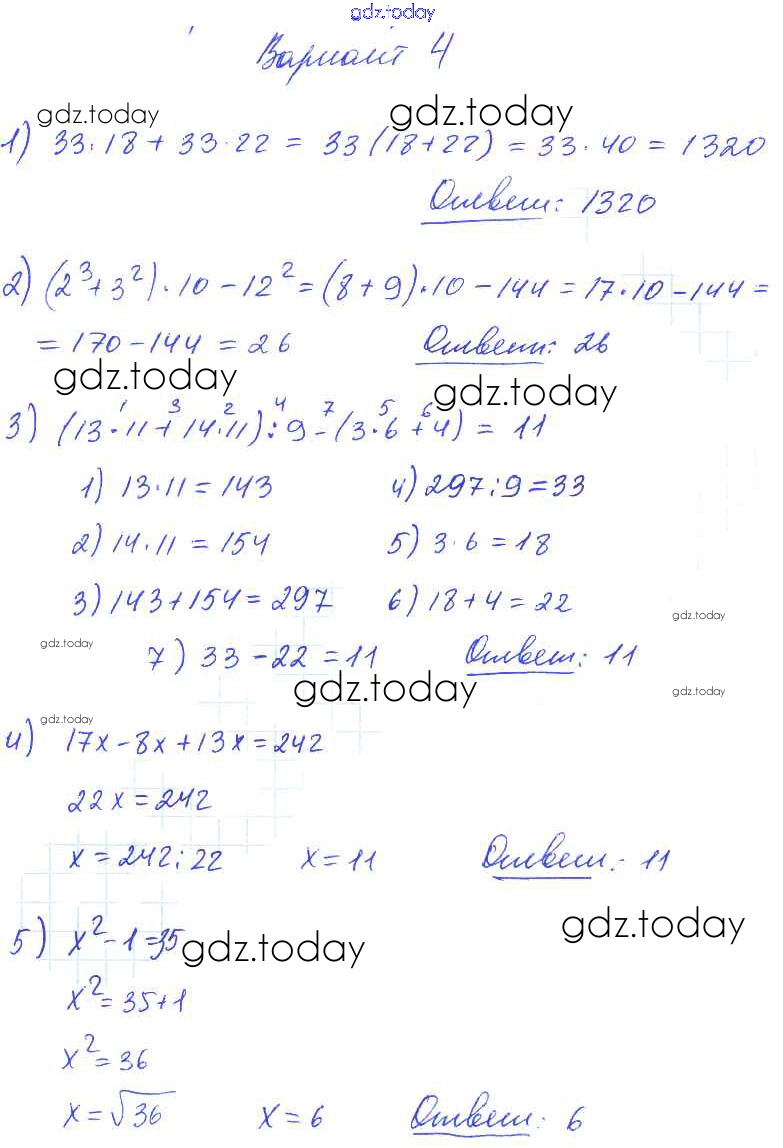 gdz.today
Вариант 4
gdz.today gdz.today
1) 33·18 + 33·22 = 33(18+22) = 33·40 = 1320
Ответ: 1320
2) (2³+3²)·10 - 12² = (8+9)·10 - 144 = 17·10 - 144 =
= 170 - 144 = 26 Ответ: 26
gdz.today gdz.today
1 3 2 4 7 5 6
3) (13·11+14·11):9-(3·6+4) = 11
1) 13·11 = 143 4) 297:9 = 33
2) 14·11 = 154 5) 3·6 = 18
3) 143+154 = 297 6) 18+4 = 22
gdz.today gdz.today
7) 33 - 22 = 11 Ответ: 11
gdz.today gdz.today
gdz.today
4) 17x - 8x + 13x = 242
22x = 242
x = 242:22 x = 11 Ответ: 11
5) x² - 1 = 35 gdz.today gdz.today
x² = 35+1
x² = 36
x = √36 x = 6 Ответ: 6